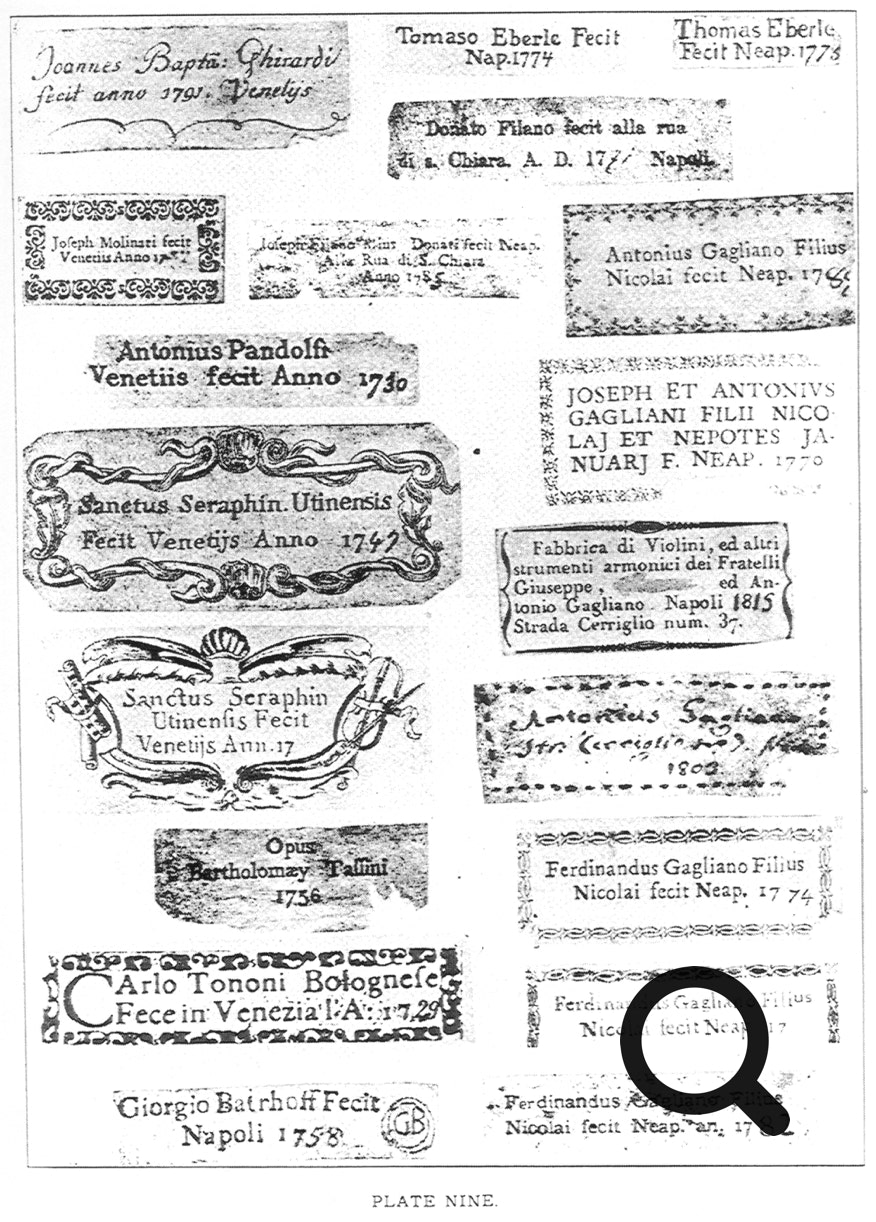 Joannes Baptã: Ghirardi
fecit anno 1791. Venetijs
Tomaso Eberle Fecit
Nap. 1774
Thomas Eberle
Fecit Neap. 1773
Donato Filano fecit alla rua
di s. Chiara. A. D. 1771 Napoli.
Joseph Molinari fecit
Venetiis Anno
Joseph Filano Filius Donati fecit Neap.
Alla Rua di S. Chiara
Anno 1785
Antonius Gagliano Filius
Nicolai fecit Neap. 178
Antonius Pandolfi
Venetiis fecit Anno 1730
JOSEPH ET ANTONIVS
GAGLIANI FILII NICO-
LAJ ET NEPOTES JA-
NUARJ F. NEAP. 1770
Sanctus Seraphin. Utinensis
Fecit Venetijs Anno 1747
Fabbrica di Violini, ed altri
strumenti armonici dei Fratelli
Giuseppe, ed An-
tonio Gagliano. Napoli 1815
Strada Cerriglio num. 37.
Sanctus Seraphin
Utinensis Fecit
Venetijs Ann. 17
Antonius Gagliano
Cerriglio
1802
Opus
Bartholomæy Tassini
1756
Ferdinandus Gagliano Filius
Nicolai fecit Neap. 1774
CArlo Tononi Bolognese
Fece in Venezia l'A: 1729
Ferdinandus Gagliano Filius
Nicolai fecit Neap. 17
Giorgio Bairhoff Fecit
Napoli 1758
GB
Ferdinandus Gagliano Filius
Nicolai fecit Neap. an. 178
PLATE NINE.